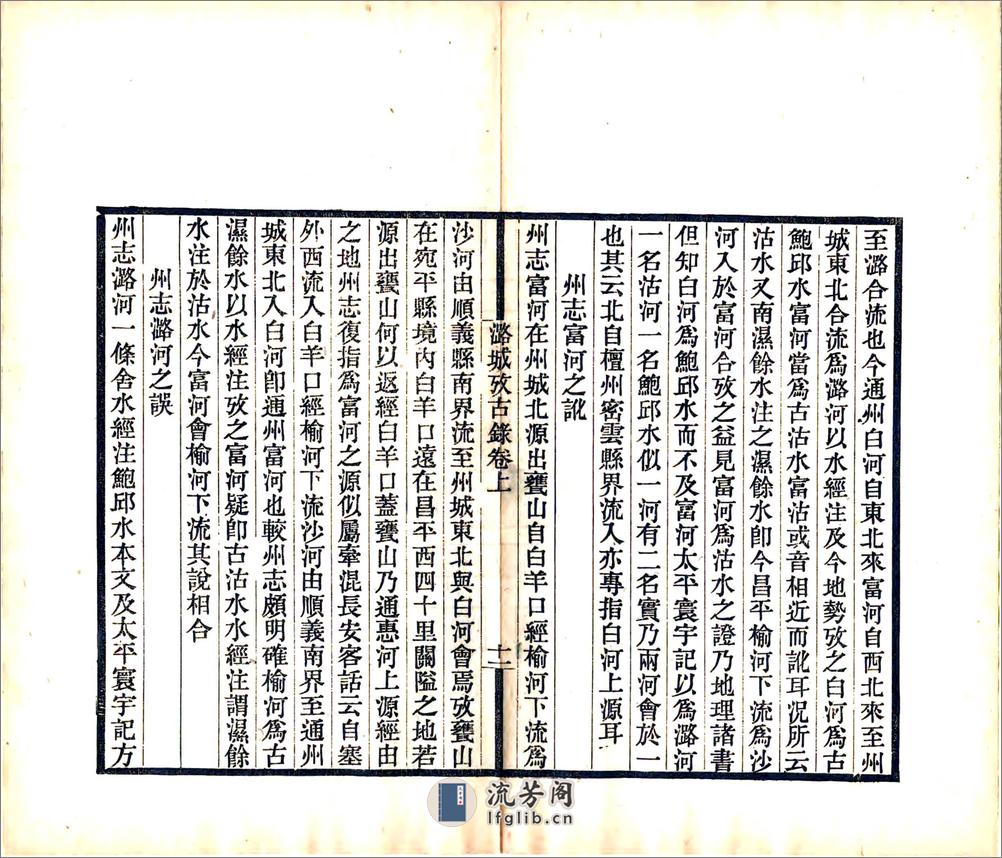 至潞合流也今通州白河自東北來富河自西北來至州
城東北合流爲潞河以水經注及今地勢攷之白河爲古
鮑邱水富河當爲古沽水富沽或音相近而訛耳況所云
沽水又南濕餘水注之濕餘水卽今昌平榆河下流爲沙
河入於富河合攷之益見富河爲沽水之證乃地理諸書
但知白河爲鮑邱水而不及富河太平寰宇記以爲潞河
一名沽河一名鮑邱水似一河有二名實乃兩河會於一
也其云北自檀州密雲縣界流入亦專指白河上源耳
州志富河之訛
州志富河在州城北源出甕山自白羊口經榆河下流爲
潞城攷古錄卷上
十一
沙河由順義縣南界流至州城東北與白河會焉攷甕山
在宛平縣境內白羊口遠在昌平西四十里關隘之地若
源出甕山何以返經白羊口蓋甕山乃通惠河上源經由
之地州志復指爲富河之源似屬牽混長安客話云自塞
外西流入白羊口經榆河下流沙河由順義南界至通州
城東北入白河卽通州富河也較州志頗明確榆河爲古
濕餘水以水經注攷之富河疑卽古沽水水經注謂濕餘
水注於沽水今富河會榆河下流其說相合
州志潞河之誤
州志潞河一條舍水經注鮑邱水本文及太平寰宇記方
流芳阁
lfglib.cn